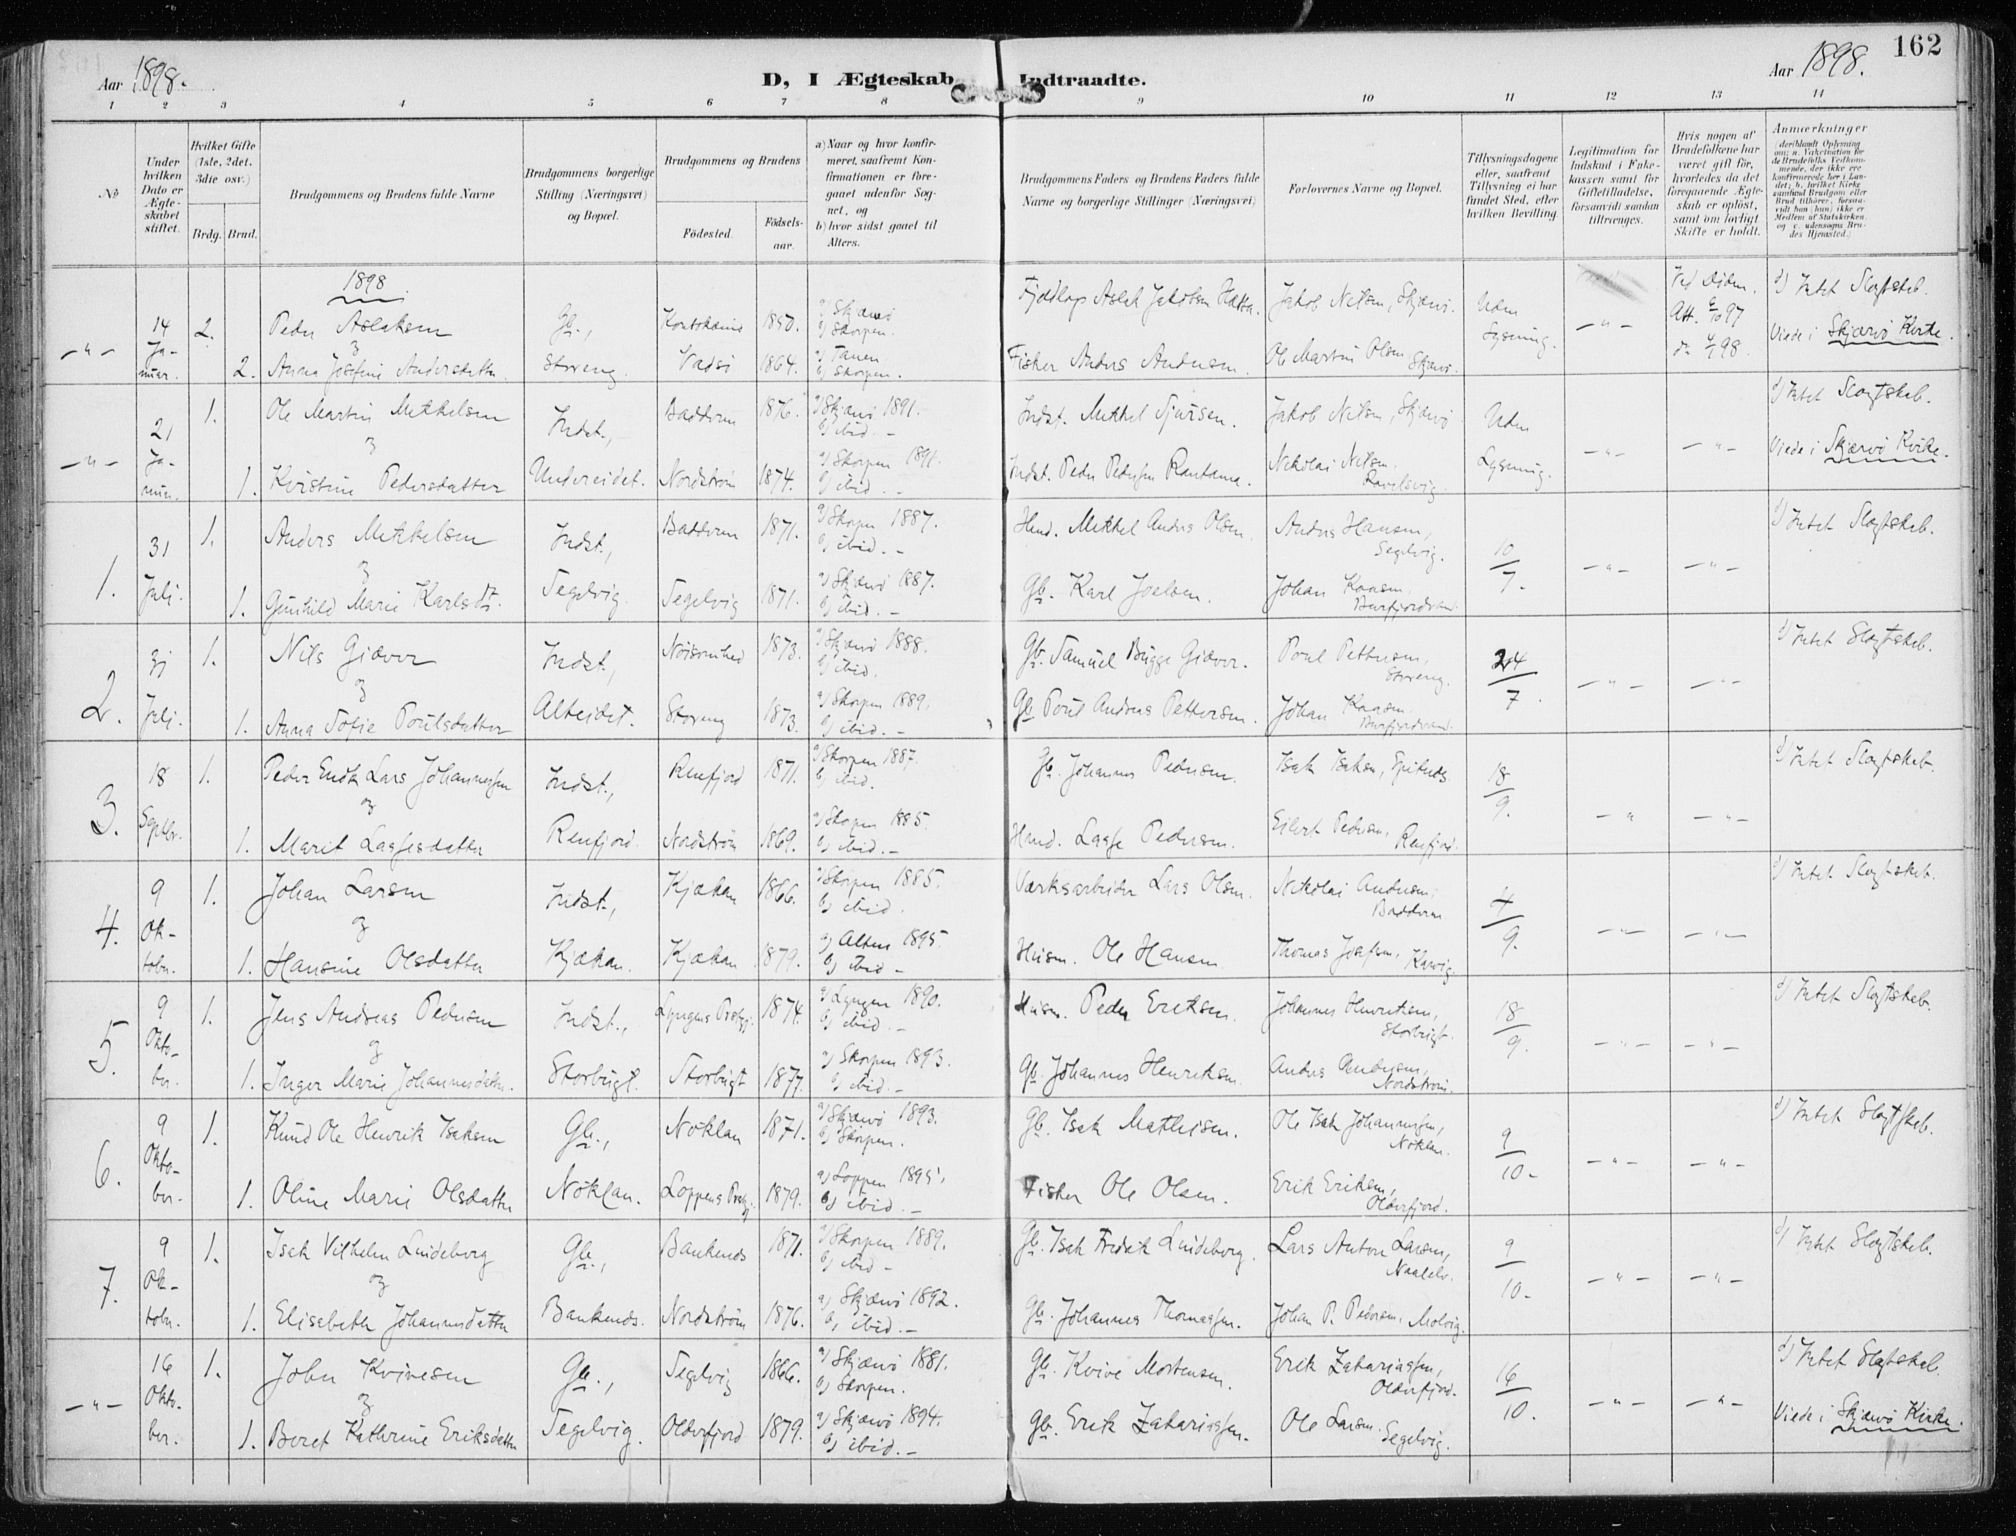 162
Aar 1898.
D, I Ægteskab Indtraadte.
Aar 1898.
1 2 3 4 5 6 7 8 9 10 11 12 13 14
№
Under hvilken Dato er Ægteskabet stiftet.
Hvilket Gifte (1ste, 2det, 3die osv.)
Brdg. Brud.
Brudgommens og Brudens fulde Navne
Brudgommens borgerlige Stilling (Næringsvei) og Bopæl.
Brudgommens og Brudens
Födested
Födselsaar.
a) Naar og hvor konfirmeret, saafremt Konfirmationen er foregaaet udenfor Sognet, og
b) hvor sidst gaaet til Alters.
Brudgommens Faders og Brudens Faders fulde Navne og borgerlige Stillinger (Næringsvei)
Forlovernes Navne og Bopæl.
Tillysningsdagene eller, saafremt Tillysning ei har fundet Sted, efter hvilken Bevilling.
Legitimation for Indskud i Enkekassen samt for Giftetilladelse, forsaavidt saadan tiltrænges.
Hvis nogen af Brudefolkene har været gift för, hvorledes da det foregaaende Ægteskab er oplöst, samt om lovligt Skifte er holdt.
Anmærkninger
1898
-"- 14 Januar. 2. Peder Aslaksen Gb., Koutokeino 1850. a) Skjærvö b) Skorpen. Fjeldlap Aslak Jakobsen Hætta. Jakob Nilsen, Skjærvö. Uden Lysning. -"- Att. 6/10 97 d) Intet Slægtskab.
og
2. Anna Josefine Andersdatter. Storeng. Vadsö 1864. a) Tanen b) Skorpen. Fisker Anders Andersen. Ole Martin Olsen, Skjærvö. Viede i Skjærvö Kirke.
-"- 21 Januar. 1. Ole Martin Mikkelsen Indst., Badderen 1876. a) Skjærvö 1891. b) ibid. - Indst. Mikkel Sjursen. Jakob Nilsen, Skjærvö. Uden Lysning. -"- -"- d) Intet Slægtskab.
og
1. Kristine Pedersdatter Undereidet. Nordström 1874. a) Skorpen 1891. b) ibid. - Indst. Peder Pedersen Rautama. Nikolai Nilsen, Ravelsvig. Viede i Skjærvö Kirke.
1. 31 Juli. 1. Anders Mikkelsen Indst., Badderen 1871. a) Skorpen 1887. b) ibid. - Mikkel Anders Olsen. Anders Hansen, Segelvig. 10/7. -"- -"- d) Intet Slægtskab.
og
1. Gunhild Marie Karlsdt. Segelvig. Segelvig 1871. a) Skjærvö 1887. b) ibid. - Gb. Karl Joelsen. Johan Kaasen, Burfjordvand.
2. 31 Juli. 1. Nils Giæver Indst., Nöisomhed 1873. a) Skjærvö 1888. b) ibid. Gb. Samuel Bugge Giæver. Poul Pettersen, Storeng. 24/7. -"- -"- d) Intet Slægtskab.
og
1. Anna Sofie Poulsdatter Alteidet. Storeng 1873. a) Skorpen 1889. b) ibid. - Gb. Poul Andreas Pettersen. Johan Kaasen, Burfjordvand.
3. 18 Septbr. 1. Peder Enok Lars Johannessen Indst., Renfjord 1871. a) Skorpen 1887. b) ibid. Gb. Johannes Pedersen. Isak Isaksen, Spitnes 18/9. -"- -"- d) Intet Slægtskab.
og
1. Marit Lassesdatter Renfjord. Nordström 1869. a) Skorpen 1885. b) ibid. - Lasse Pedersen. Eilert Pedersen, Renfjord.
4. 9 Oktober. 1. Johan Larsen Indst., Kjækan 1866. a) Skorpen 1885. b) ibid. Værksarbeider Lars Olsen. Nikolai Andersen, Badderen 4/9. -"- -"- d) Intet Slægtskab.
og
1. Hansine Olsdatter Kjækan. Kjækan 1879. a) Alten 1895. b) ibid - Husm. Ole Hansen. Thomas Josefsen, Karvig.
5. 9 Oktober. 1. Jens Andreas Pedersen Indst., Lyngens Prstgj. 1874. a) Lyngen 1890. b) ibid. - Husm. Peder Eriksen. Johannes Henriksen, Storbugt. 18/9. -"- -"- d) Intet Slægtskab.
og
1. Inger Marie Johannesdatter. Storbugt. Storbugt 1877. a) Skorpen 1893. b) ibid. - Gb. Johannes Henriksen. Anders Andersen, Nordström.
6. 9 Oktober. 1. Knud Ole Henrik Isaksen Gb., Nöklan 1871. a) Skjærvö 1893. b) Skorpen. Gb. Isak Mathisen. Ole Isak Johannessen, Nöklan. 9/10. -"- -"- d) Intet Slægtskab.
1. Oline Marie Olsdatter Nöklan. Loppens Prstgj. 1879. a) Loppen 1895. b) ibid. - Fisker Ole Olsen. Erik Eriksen, Olderfjord.
7. 9 Oktober. 1. Isak Vilhelm Lindeborg Gb., Bankenes 1871. a) Skorpen 1889. b) ibid - Gb. Isak Fredrik Lindeborg. Lars Anton Larsen, Naaelv. 9/10. -"- -"- d) Intet Slægtskab.
og
1. Elisabeth Johannesdatter Bankenes. Nordström 1876. a) Skjærvö 1892. b) ibid. - Gb. Johannes Thomassen. Johan P. Pedersen, Molvig.
-"- 16 Oktober. 1. John Kvivesen Gb., Segelvig 1866. a) Skjærvö 1881. b) Skorpen. Gb. Kvive Mortensen. Erik Zakariassen, Olderfjord. 16/10. -"- -"- d) Intet Slægtskab.
og
1. Beret Kathrine Eriksdatter Segelvig. Olderfjord 1879. a) Skjærvö 1894. b) ibid. - Gb. Erik Zakariassen. Ole Larsen, Segelvig. Viede i Skjærvö Kirke.